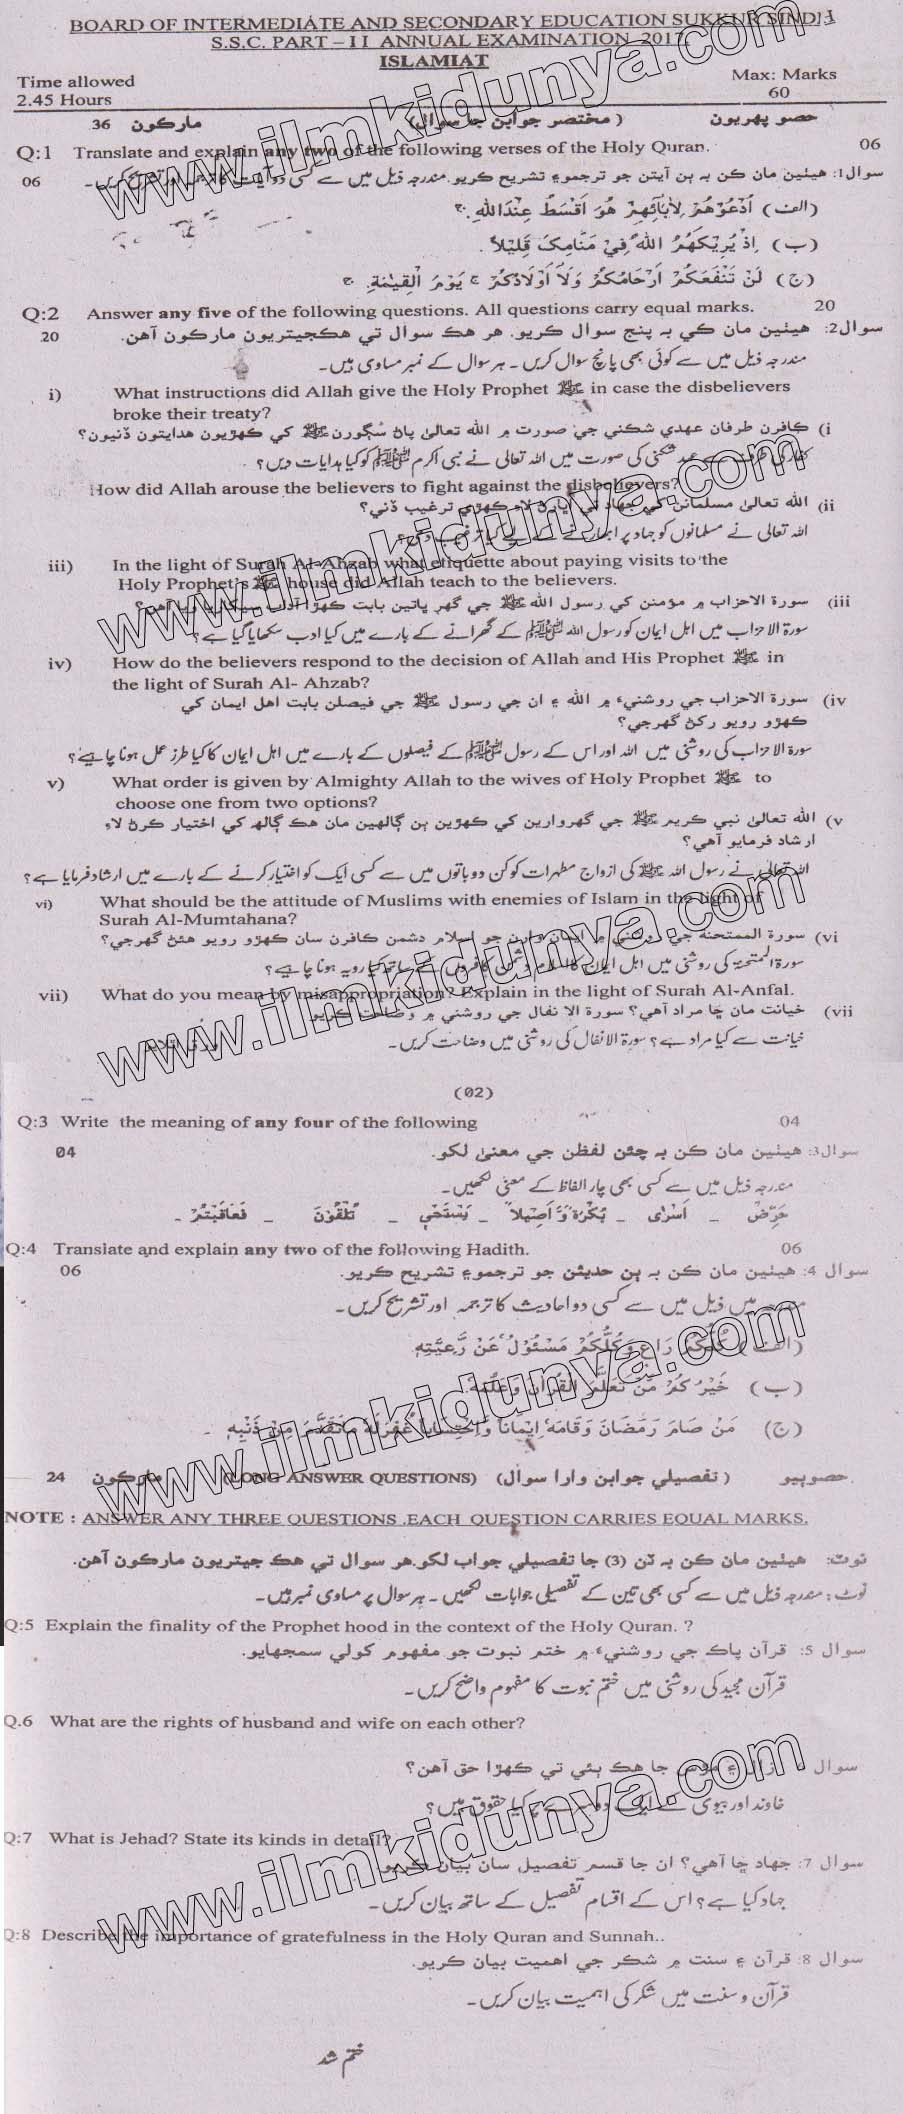 BOARD OF INTERMEDIATE AND SECONDARY EDUCATION SUKKUR SINDH
S.S.C. PART – II ANNUAL EXAMINATION 2017.
ISLAMIAT
Time allowed Max: Marks
2.45 Hours 60
حصو پھريون (مختصر جوابن جا سوال) مارڪون 36
Q:1 Translate and explain any two of the following verses of the Holy Quran. 06
سوال1: هيٺين مان ڪن به ٻن آيتن جو ترجمو ۽ تشريح ڪريو. مندرجہ ذیل میں سے کسی دو آیات کا ترجمہ اور تشریح کریں۔ 06
(الف) اُدْعُوْهُمْ لِاٰبَآئِهِمْ هُوَ اَقْسَطُ عِنْدَاللهِ ۚ
(ب) اِذْ يُرِيْكَهُمُ اللهُ فِيْ مَنَامِكَ قَلِيْلاً .
(ج) لَنْ تَنْفَعَكُمْ اَرْحَامُكُمْ وَلَآ اَوْلَادُكُمْ ۚ يَوْمَ الْقِيٰمَةِ ۚ
Q:2 Answer any five of the following questions. All questions carry equal marks. 20
سوال2: هيٺين مان ڪي به پنج سوال ڪريو. هر هڪ سوال تي هڪجيتريون مارڪون آهن. 20
مندرجہ ذیل میں سے کوئی بھی پانچ سوال کریں۔ ہر سوال کے نمبر مساوی ہیں۔
i) What instructions did Allah give the Holy Prophet ﷺ in case the disbelievers
broke their treaty?
i) ڪافرن طرفان عهدي شڪني جي صورت ۾ الله تعاليٰ پاڻ سڳورن ﷺ کي ڪهڙيون هدايتون ڏنيون؟
کفار کی طرف سے عہد شکنی کی صورت میں اللہ تعالی نے نبی اکرم ﷺ کو کیا ہدایات دیں؟
How did Allah arouse the believers to fight against the disbelievers?
ii) الله تعاليٰ مسلمانن کي جهاد تي اڀارڻ لاءِ ڪهڙي ترغيب ڏني؟
اللہ تعالی نے مسلمانوں کو جہاد پر ابھارنے کے لیے کیا ترغیب دی؟
iii) In the light of Surah Al-Ahzab what etiquette about paying visits to the
Holy Prophet's ﷺ house did Allah teach to the believers.
iii) سورة الاحزاب ۾ مؤمنن کي رسول الله ﷺ جي گهر ڀاتين بابت ڪهڙا آداب سيکاريا ويا آهن؟
سورۃ الاحزاب میں اہل ایمان کو رسول اللہ ﷺ کے گھرانے کے بارے میں کیا ادب سکھایا گیا ہے؟
iv) How do the believers respond to the decision of Allah and His Prophet ﷺ in
the light of Surah Al- Ahzab?
iv) سورة الاحزاب جي روشنيءَ ۾ الله ۽ ان جي رسول ﷺ جي فيصلن بابت اهل ايمان کي
ڪهڙو رويو رکڻ گهرجي؟
سورۃ الاحزاب کی روشنی میں اللہ اور اس کے رسول ﷺ کے فیصلوں کے بارے میں اہل ایمان کا کیا طرز عمل ہونا چاہیے؟
v) What order is given by Almighty Allah to the wives of Holy Prophet ﷺ to
choose one from two options?
v) الله تعاليٰ نبي ڪريم ﷺ جي گهروارين کي ڪهڙين ٻن ڳالهين مان هڪ ڳالھ کي اختيار ڪرڻ لاءِ
ارشاد فرمايو آهي؟
اللہ تعالی نے رسول اللہ ﷺ کی ازواج مطہرات کو کن دو باتوں میں سے کسی ایک کو اختیار کرنے کے بارے میں ارشاد فرمایا ہے؟
vi) What should be the attitude of Muslims with enemies of Islam in the light of
Surah Al-Mumtahana?
vi) سورة الممتحنه جي روشني ۾ ايمان وارن جو اسلام دشمن ڪافرن سان ڪهڙو رويو هئڻ گهرجي؟
سورۃ الممتحنۃ کی روشنی میں اہل ایمان کا اسلام دشمن کافروں کے ساتھ کیا رویہ ہونا چاہیے؟
vii) What do you mean by misappropriation? Explain in the light of Surah Al-Anfal.
vii) خيانت مان ڇا مراد آهي؟ سورة الانفال جي روشني ۾ وضاحت ڪريو.
خیانت سے کیا مراد ہے؟ سورۃ الانفال کی روشنی میں وضاحت کریں۔
(02)
Q:3 Write the meaning of any four of the following 04
سوال3: هيٺين مان ڪن به چئن لفظن جي معنيٰ لکو. 04
مندرجہ ذیل میں سے کسی بھی چار الفاظ کے معنی لکھیں۔
حَرِّضْ - اَسْرٰى - بُكْرَةً وَّ اَصِيْلاً - يَسْتَحْيٖ - تُلْقُوْنَ - فَعَاقَبْتُمْ -
Q:4 Translate and explain any two of the following Hadith. 06
سوال 4: هيٺين مان ڪن به ٻن حديثن جو ترجمو ۽ تشريح ڪريو. 06
میں ذیل میں سے کسی دو احادیث کا ترجمہ اور تشریح کریں۔
(الف) كُلُّكُمْ رَاعٍ وَكُلُّكُمْ مَسْئُوْلٌ عَنْ رَّعِيَّتِهٖ.
(ب) خَيْرُكُمْ مَنْ تَعَلَّمَ الْقُرْاٰنَ وَعَلَّمَهٗ.
(ج) مَنْ صَامَ رَمَضَانَ وَقَامَهٗ اِيْمَاناً وَاِحْتِسَاباً غُفِرَلَهٗ مَاتَقَدَّمَ مِنْ ذَنْبِهٖ.
حصوٻيو (تفصيلي جوابن وارا سوال) (LONG ANSWER QUESTIONS) مارڪون 24
NOTE : ANSWER ANY THREE QUESTIONS .EACH QUESTION CARRIES EQUAL MARKS.
نوٽ: هيٺين مان ڪن به ٽن (3) جا تفصيلي جواب لکو.هر سوال تي هڪ جيتريون مارڪون آهن.
نوٹ: مندرجہ ذیل میں سے کسی بھی تین کے تفصیلی جوابات لکھیں۔ ہر سوال پر مساوی نمبر ہیں۔
Q:5 Explain the finality of the Prophet hood in the context of the Holy Quran. ?
سوال 5: قرآن پاڪ جي روشنيءَ ۾ ختم نبوت جو مفهوم کولي سمجهايو.
قرآن مجید کی روشنی میں ختم نبوت کا مفہوم واضح کریں۔
Q.6 What are the rights of husband and wife on each other?
سوال زال ۽ مڙس جا هڪ ٻئي تي ڪهڙا حق آهن؟
خاوند اور بیوی کے ایک دوسرے پر کیا حقوق ہیں؟
Q:7 What is Jehad? State its kinds in detail?
سوال 7: جهاد ڇا آهي؟ ان جا قسم تفصيل سان بيان ڪريو.
جہاد کیا ہے؟ اس کے اقسام تفصیل کے ساتھ بیان کریں۔
Q:8 Describe the importance of gratefulness in the Holy Quran and Sunnah..
سوال 8: قرآن ۽ سنت ۾ شڪر جي اهميت بيان ڪريو.
قرآن و سنت میں شکر کی اہمیت بیان کریں۔
ختم شد
www.ilmkidunya.com
www.ilmkidunya.com
www.ilmkidunya.com
www.ilmkidunya.com
www.ilmkidunya.com